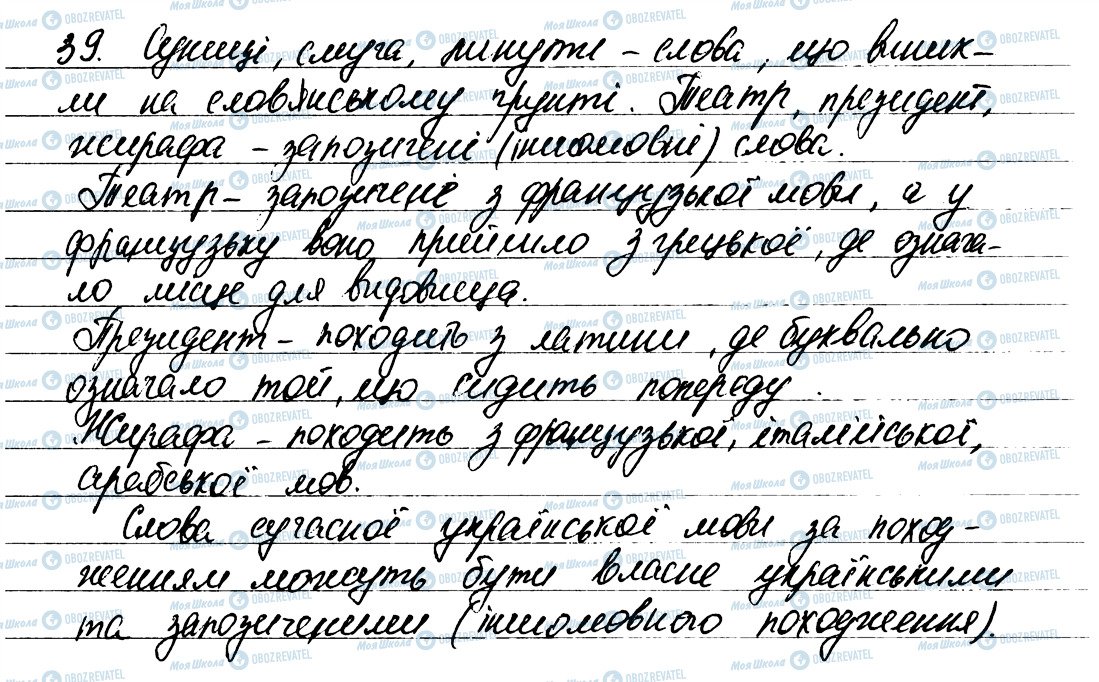 39. Суниці, смуга, линути – слова, що виник-
ли на слов'янському ґрунті. Театр, президент,
жирафа – запозичені (іншомовні) слова.
Театр – запозичене з французької мови, а у
французьку воно прийшло з грецької, де означа-
ло місце для видовища.
Президент – походить з латини, де буквально
означало той, що сидить попереду.
Жирафа – походить з французької, італійської,
арабської мов.
Слова сучасної української мови за поход-
женням можуть бути власне українськими
та запозиченими (іншомовного походження).